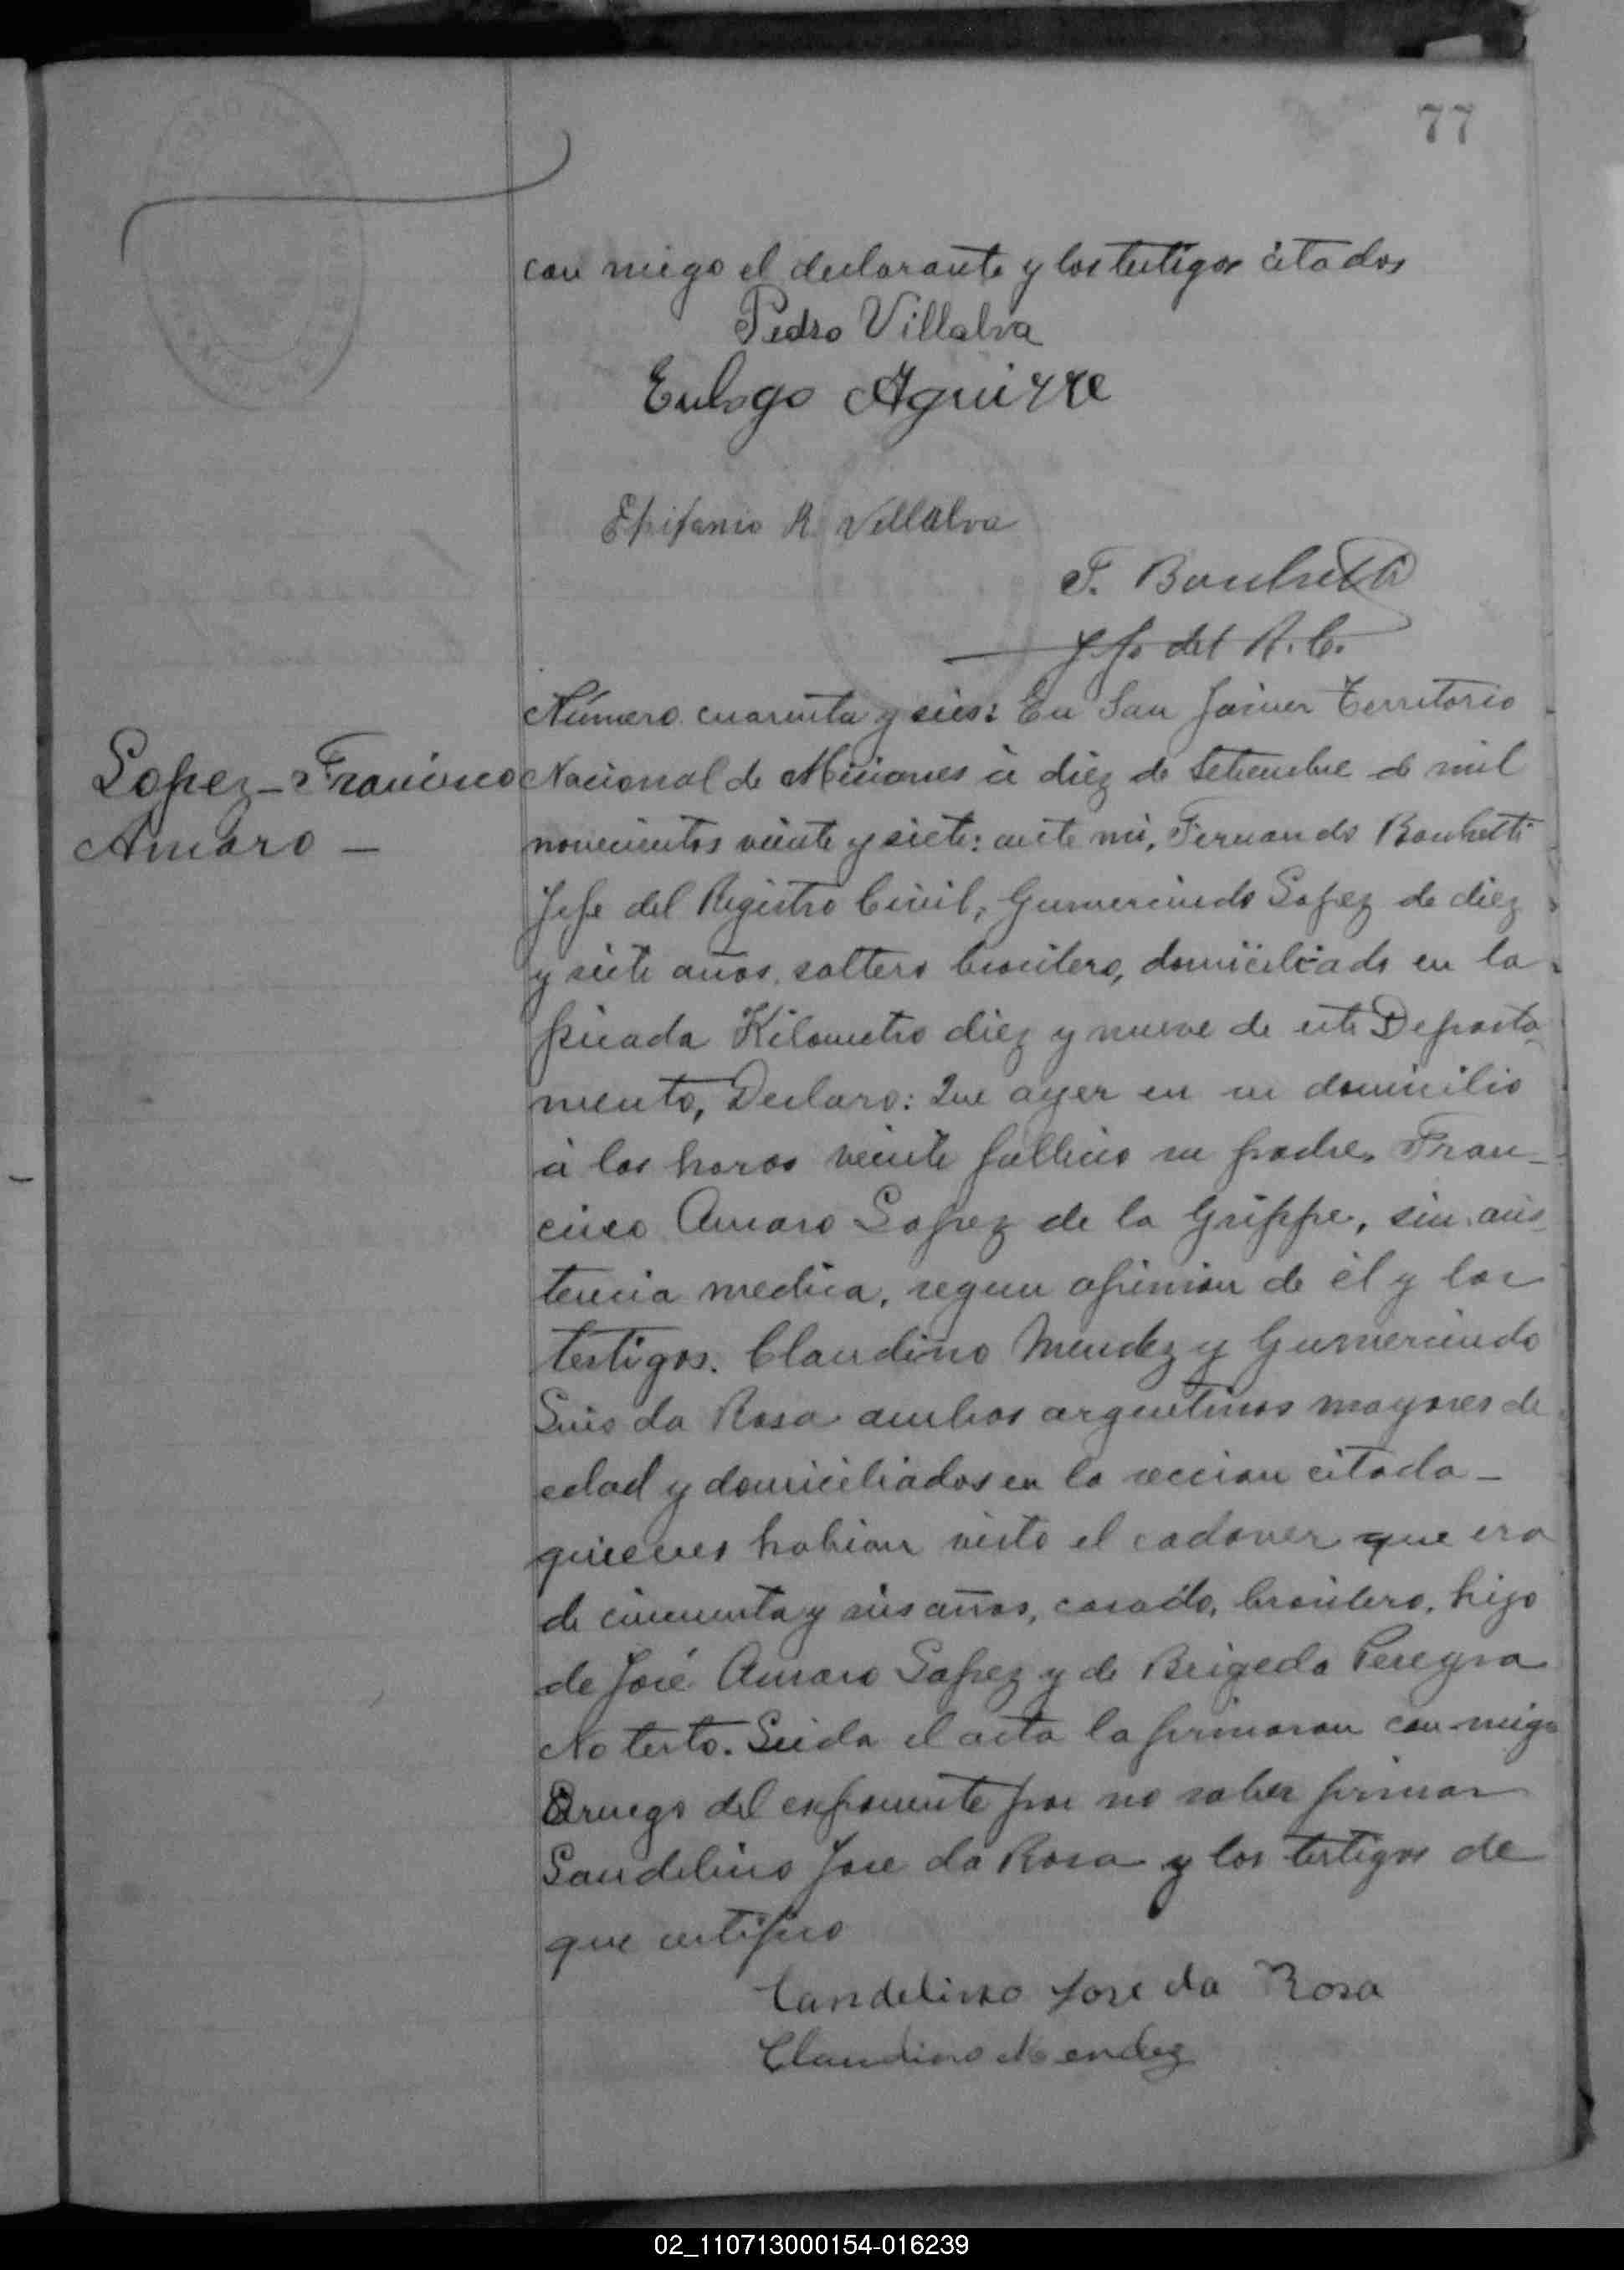 77
con migo el declarante y los testigos citados
Pedro Villalva
Eulogo Aguirre
Epifanio R Villalva
F. Bonchetti
Jefe del R. C.
Lopez - Francisco
Amaro -
Número cuarenta y seis: En San Javier Territorio
Nacional de Misiones á diez de Setiembre de mil
novecientos veinte y siete: ante mi, Fernando Bonchetti
Jefe del Registro Civil, Gumercindo Lopez de diez
y siete años, soltero brasilero, domiciliado en la
picada Kilometro diez y nueve de este Departa
mento, Declaro: Que ayer en su domicilio
á las horas veinte fallecio su padre, Fran-
cisco Amaro Lopez de la Grippe, sin asis
tencia medica, segun opinion de él y los
testigos. Claudino Mendez y Gumercindo
Luis da Rosa ambos argentinos mayores de
edad y domiciliados en la seccion citada -
quienes habian visto el cadaver que era
de cincuenta y seis años, casado, brasilero, hijo
de José Amaro Lopez y de Brigeda Pereyra
No testo. Leida el acta la firmaron con migo
A ruego del exponente por no saber firmar
Candelino Jose da Rosa y los testigos de
que certifico
Candelino Jose da Rosa
Claudino Mendez
02_110713000154-016239